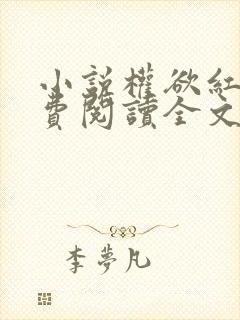 小說權欲紅
費閱讀全文
李夢凡